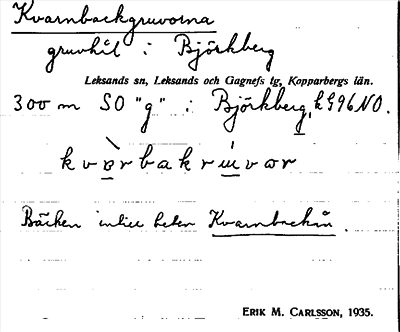 Kvarnbackgruvorna
gruvhål i Björkberg
Leksands sn, Leksands och Gagnefs tg, Kopparbergs län.
300 m SO "g" i Björkberg, k G96NO.
kvarbakruvor
Bäcken intill heter Kvarnbackån.
ERIK M. CARLSSON, 1935.